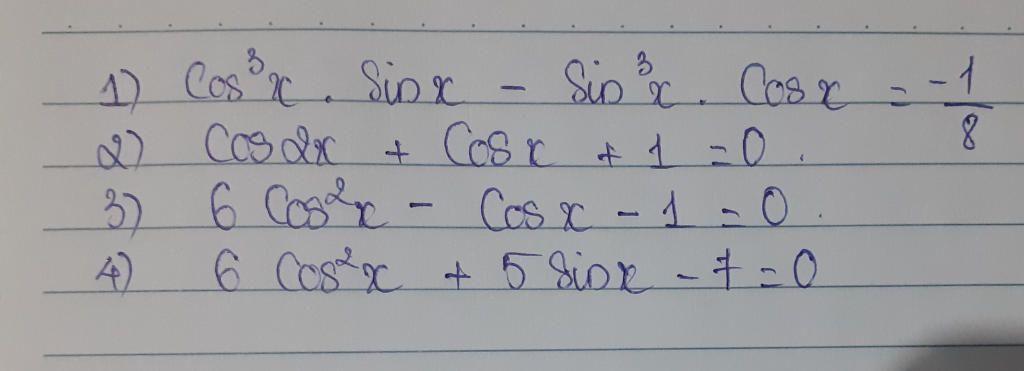 1) Cos³x . Sinx - Sin³x . Cosx = -1/8
2) Cos2x + Cosx + 1 = 0.
3) 6 Cos²x - Cosx - 1 = 0.
4) 6 Cos²x + 5 Sinx - 7 = 0